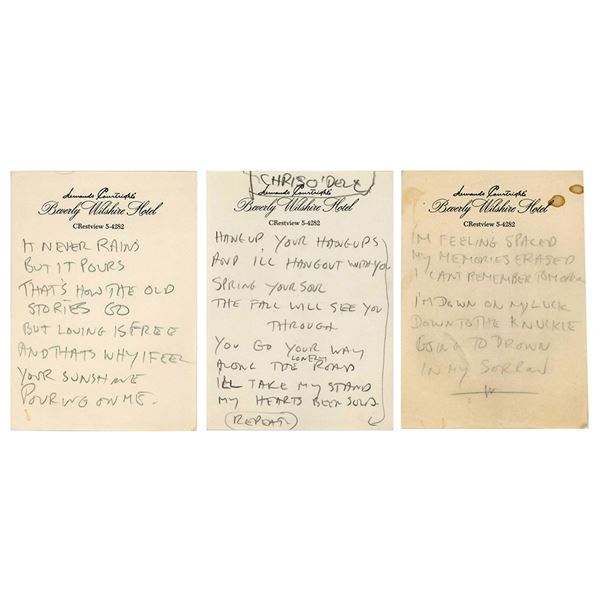 Hernando Courtright's
Beverly Wilshire Hotel
CRestview 5-4282
IT NEVER RAINS
BUT IT POURS
THAT'S HOW THE OLD
STORIES GO
BUT LOVING IS FREE
AND THATS WHY I FEEL
YOUR SUNSHINE
POURING ON ME.
CHRIS O'DELL
Hernando Courtright's
Beverly Wilshire Hotel
CRestview 5-4282
HANG UP YOUR HANGUPS
AND ILL HANGOUT WITH YOU
SPRING YOUR SOUL
THE FALL WILL SEE YOU
THROUGH
YOU GO YOUR WAY
LONELY
ALONG THE ROAD
ILL TAKE MY STAND
MY HEARTS BEEN SOLD
(REPEAT)
Hernando Courtright's
Beverly Wilshire Hotel
CRestview 5-4282
I'M FEELING SPACED
MY MEMORIES ERASED
I CANT REMEMBER TOMORROW
I'M DOWN ON MY LUCK
DOWN TO THE KNUCKLE
GOING TO DROWN
IN MY SORROW